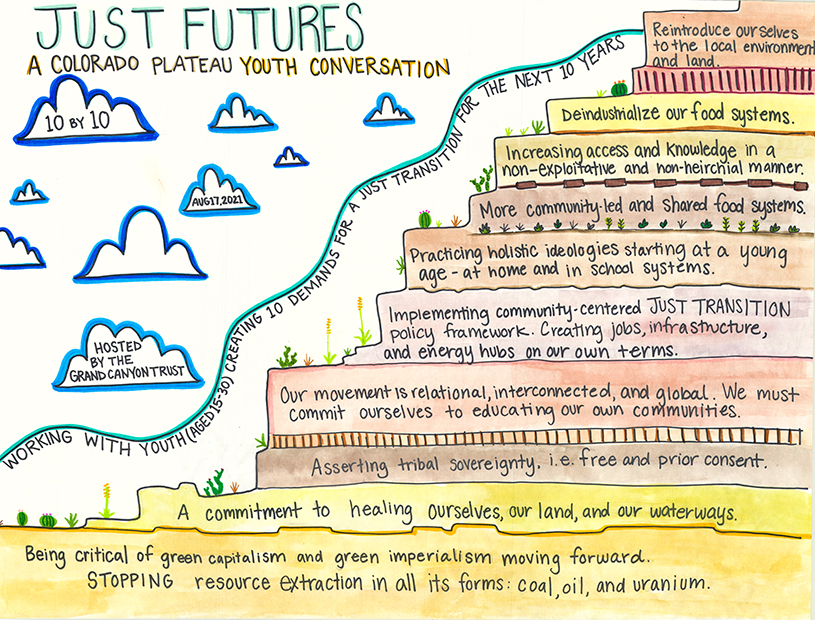 JUST FUTURES
A COLORADO PLATEAU YOUTH CONVERSATION
10 BY 10
AUG 17, 2021
HOSTED
BY THE
GRAND CANYON TRUST
WORKING WITH YOUTH (AGED 15-30) CREATING 10 DEMANDS FOR A JUST TRANSITION FOR THE NEXT 10 YEARS
Reintroduce ourselves
to the local environment
and land.
Deindustrialize our food systems.
Increasing access and knowledge in a
non-exploitative and non-heirchial manner.
More community-led and shared food systems.
Practicing holistic ideologies starting at a young
age - at home and in school systems.
Implementing community-centered JUST TRANSITION
policy framework. Creating jobs, infrastructure,
and energy hubs on our own terms.
Our movement is relational, interconnected, and global. We must
commit ourselves to educating our own communities.
Asserting tribal sovereignty, i.e. free and prior consent.
A commitment to healing ourselves, our land, and our waterways.
Being critical of green capitalism and green imperialism moving forward.
STOPPING resource extraction in all its forms: coal, oil, and uranium.